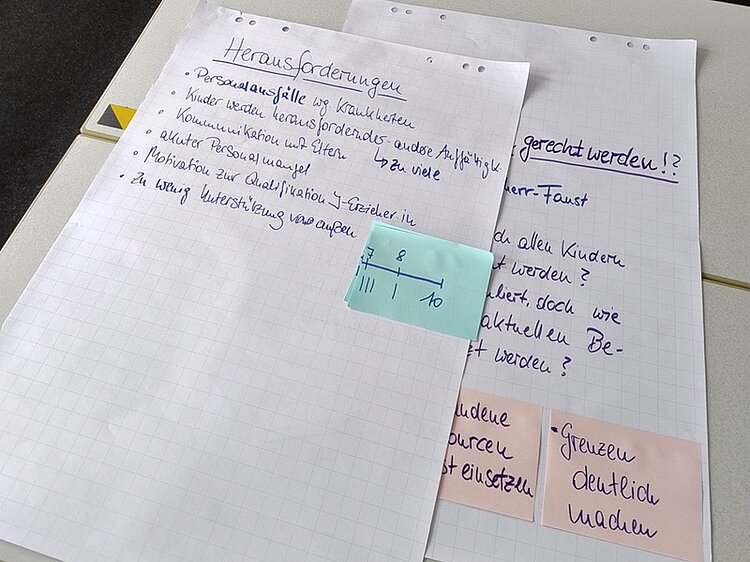 Herausforderungen
• Personalausfälle wg. Krankheiten
• Kinder werden herausfordernder - andere Auffälligk.
↳ zu viele
• Kommunikation mit Eltern
• akuter Personalmangel
• Motivation zur Qualifikation J-Erzieher in
• Zu wenig Unterstützung von außen
7 8
III I 10
gerecht werden!?
err-Faust
ch allen Kindern
t werden?
liert, doch wie
aktuellen Be-
t werden?
andene
ourcen
st einsetzen
• Grenzen
deutlich
machen